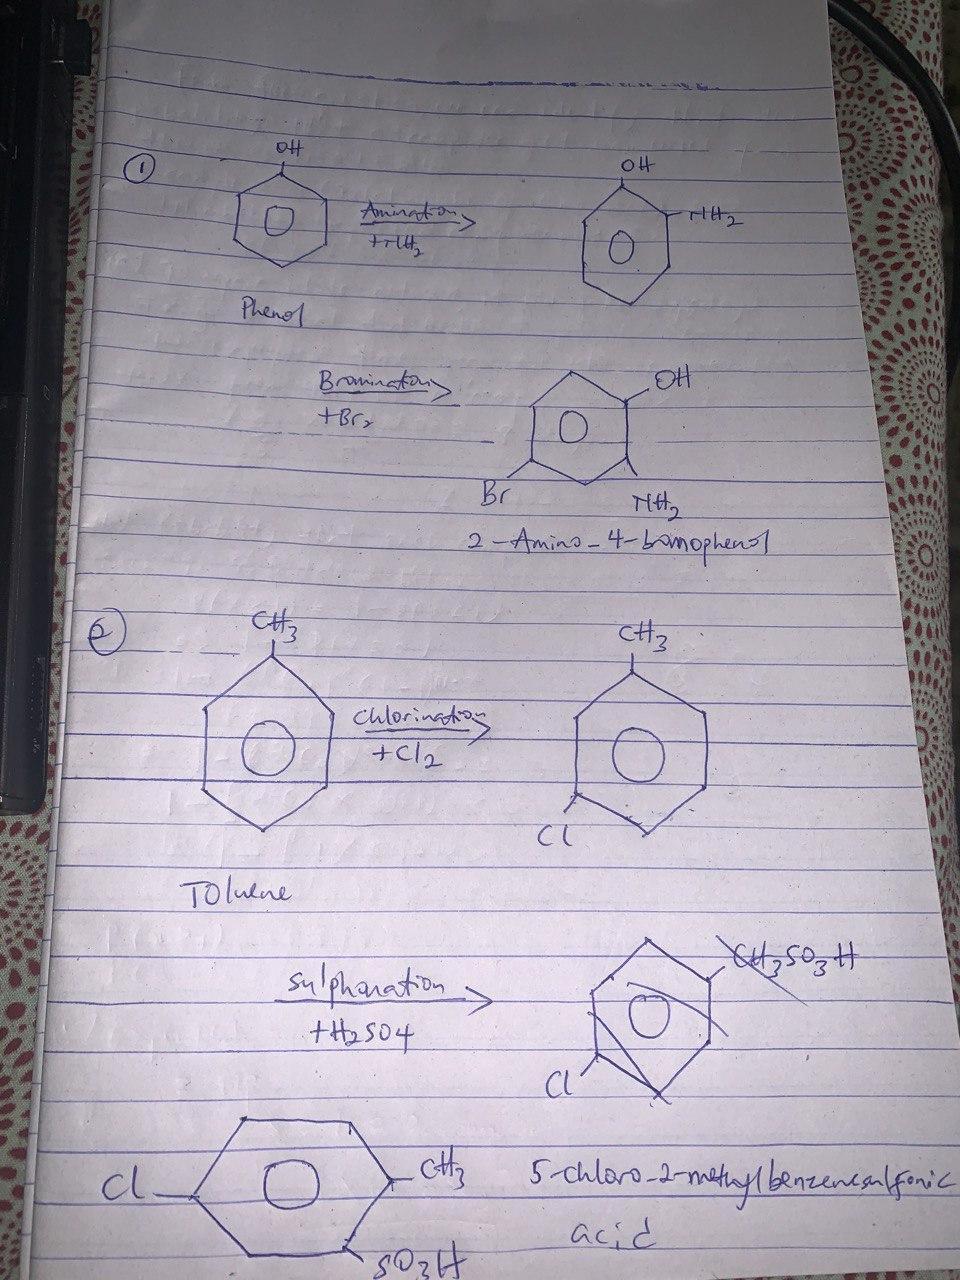 ①
OH
Amination
+NH2
OH
NH2
Phenol
Bromination
+Br2
OH
Br
NH2
2-Amino-4-bomophenol
②
CH3
chlorination
+Cl2
CH3
Cl
TOluene
sulphonation
+H2SO4
CH3SO3H
Cl
Cl
CH3
SO3H
5-chloro-2-methylbenzenesulfonic
acid